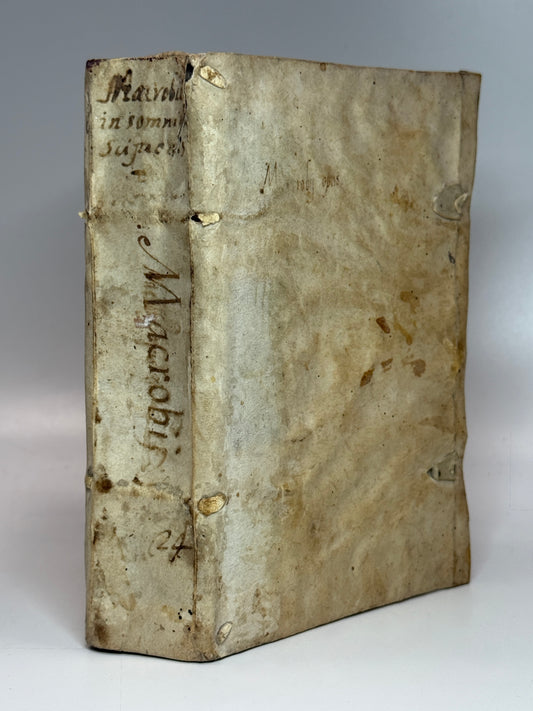 Macrobii
in somni
Scipionis
Macrobij
24
Macrobij opus